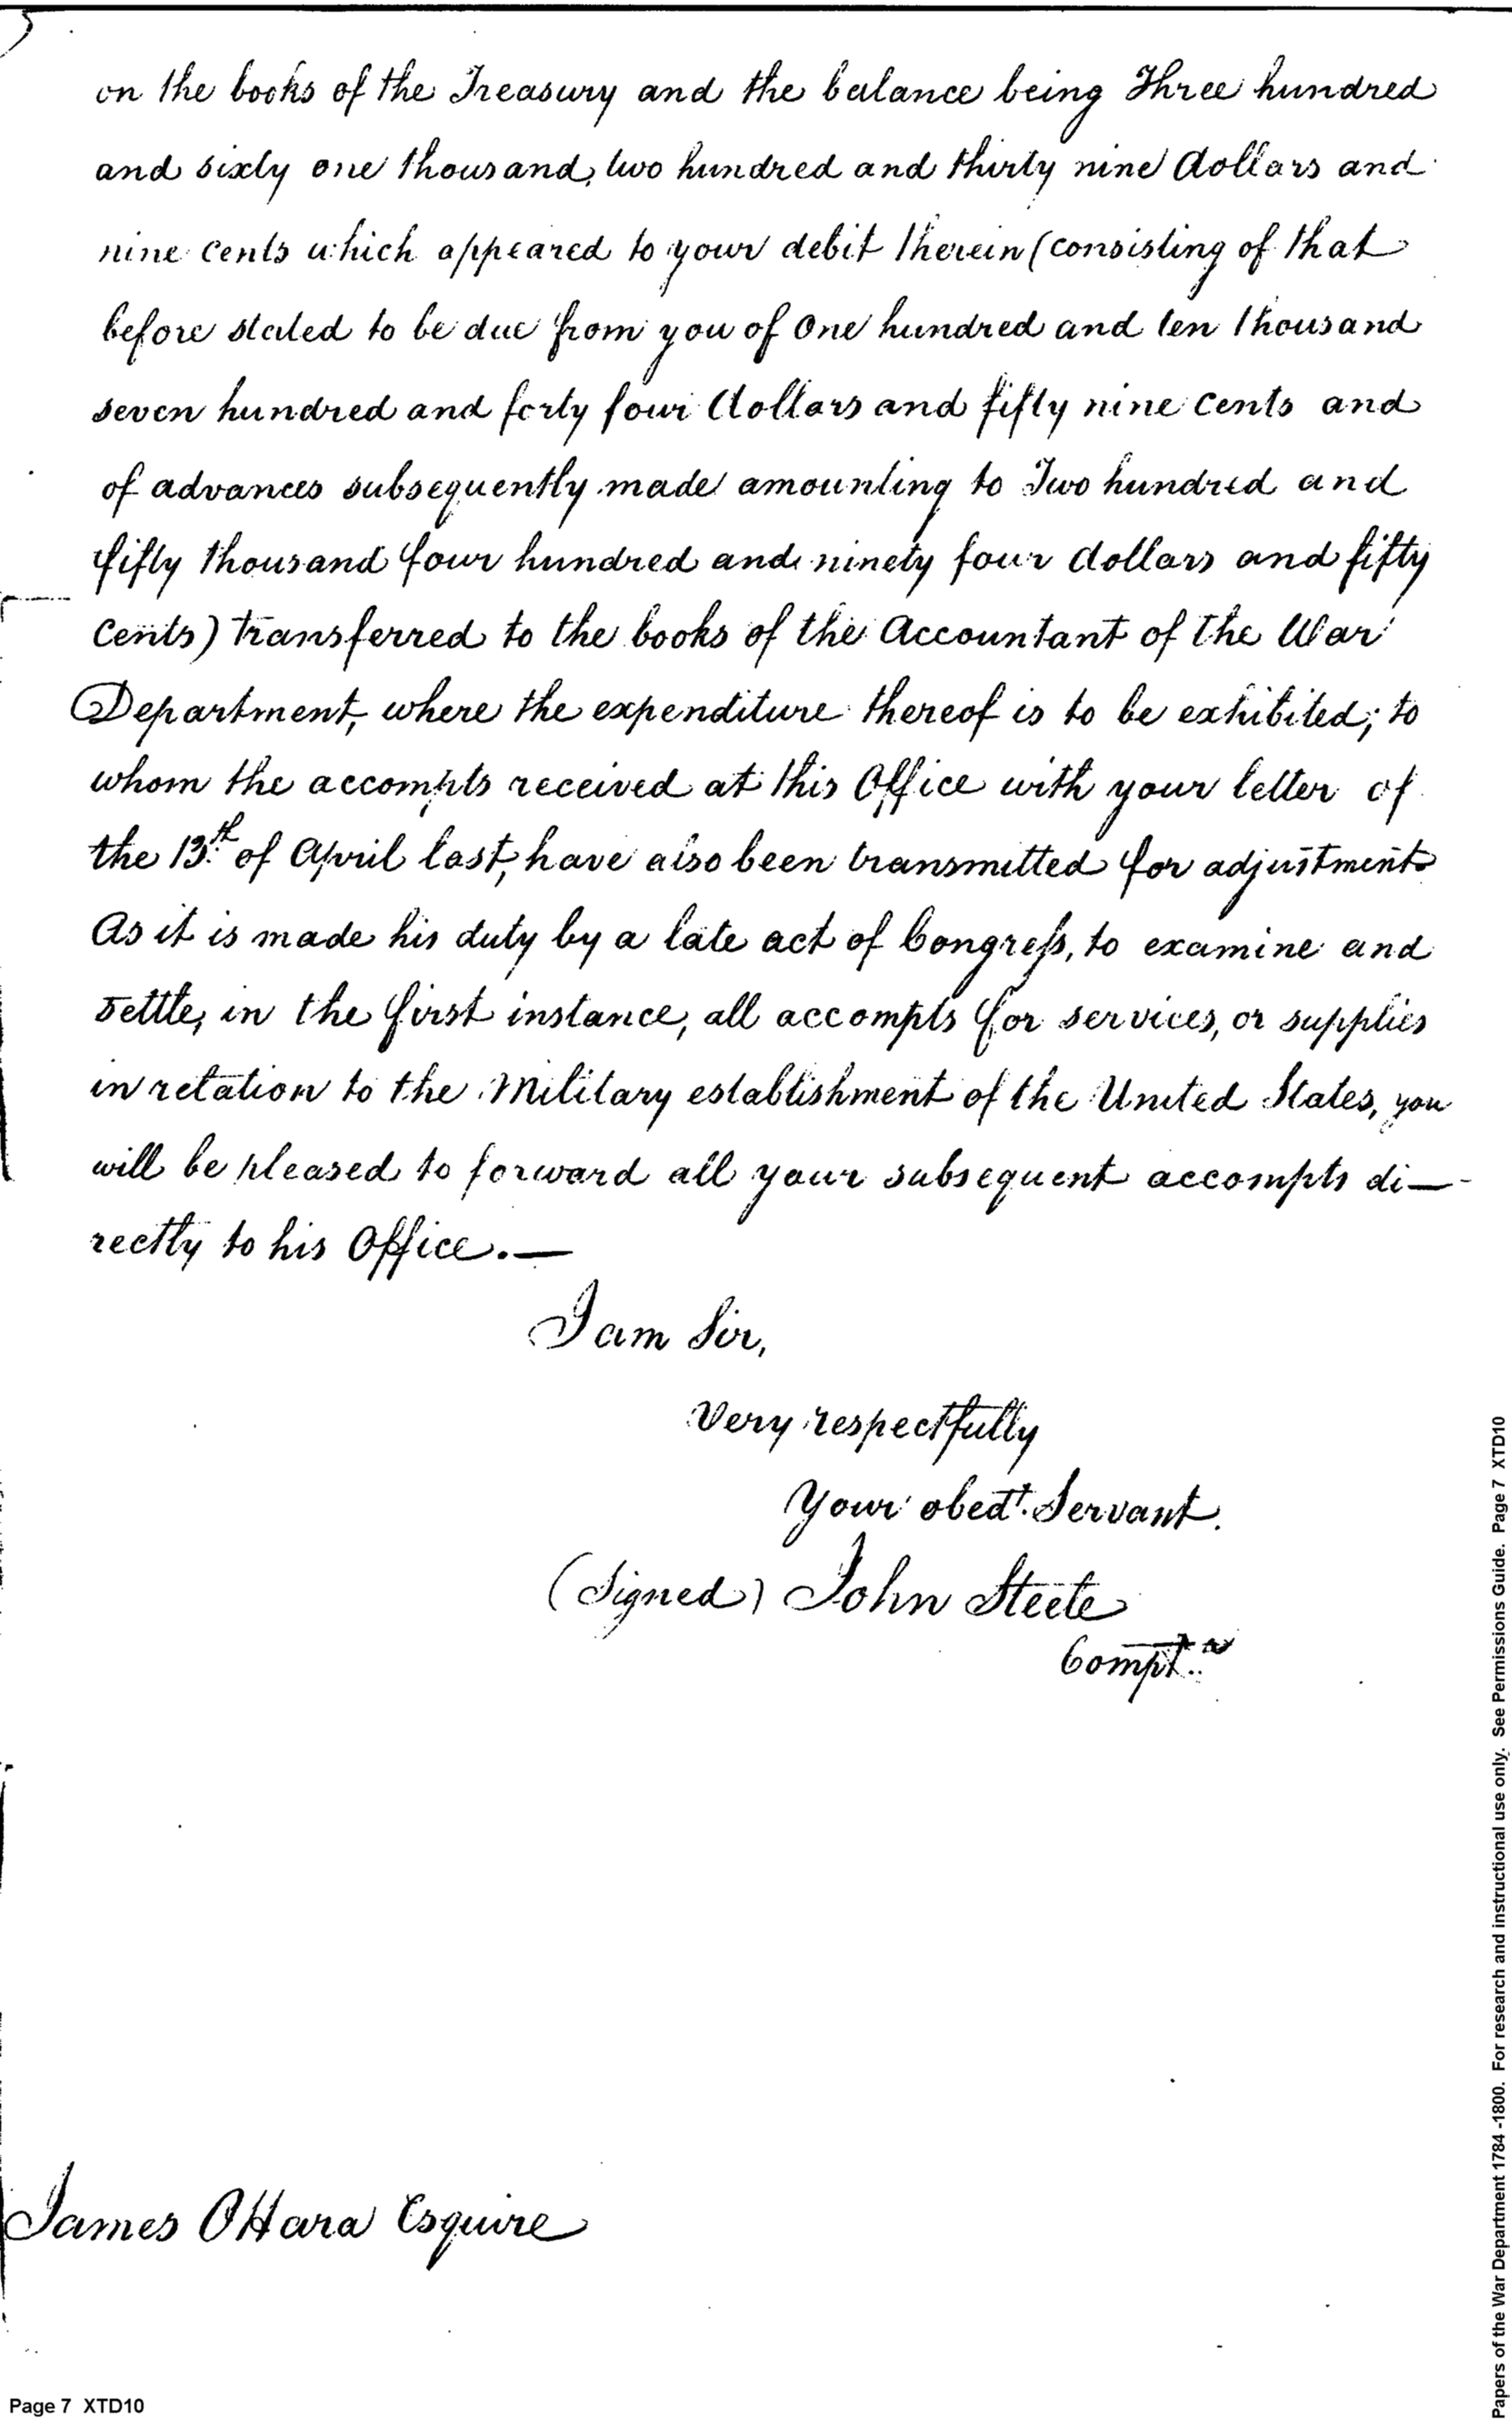 on the books of the Treasury and the balance being Three hundred
and sixty one thousand, two hundred and thirty nine dollars and
nine cents which appeared to your debit therein (consisting of that
before stated to be due from you of One hundred and ten thousand
seven hundred and forty four dollars and fifty nine cents and
of advances subsequently made amounting to Two hundred and
fifty thousand four hundred and ninety four dollars and fifty
Cents) transferred to the books of the Accountant of the War
Department, where the expenditure thereof is to be exhibited; to
whom the accompts received at this Office with your letter of
the 13th of April last, have also been transmitted for adjustment
As it is made his duty by a late act of Congress, to examine and
settle, in the first instance, all accompts for services, or supplies
in relation to the Military establishment of the United States, you
will be pleased to forward all your subsequent accompts di—
rectly to his Office.—
I am Sir,
Very respectfully
Your obedt. Servant.
(Signed) John Steele
Comptr
James OHara Esquire
Page 7 XTD10
Papers of the War Department 1784 -1800. For research and instructional use only. See Permissions Guide. Page 7 XTD10